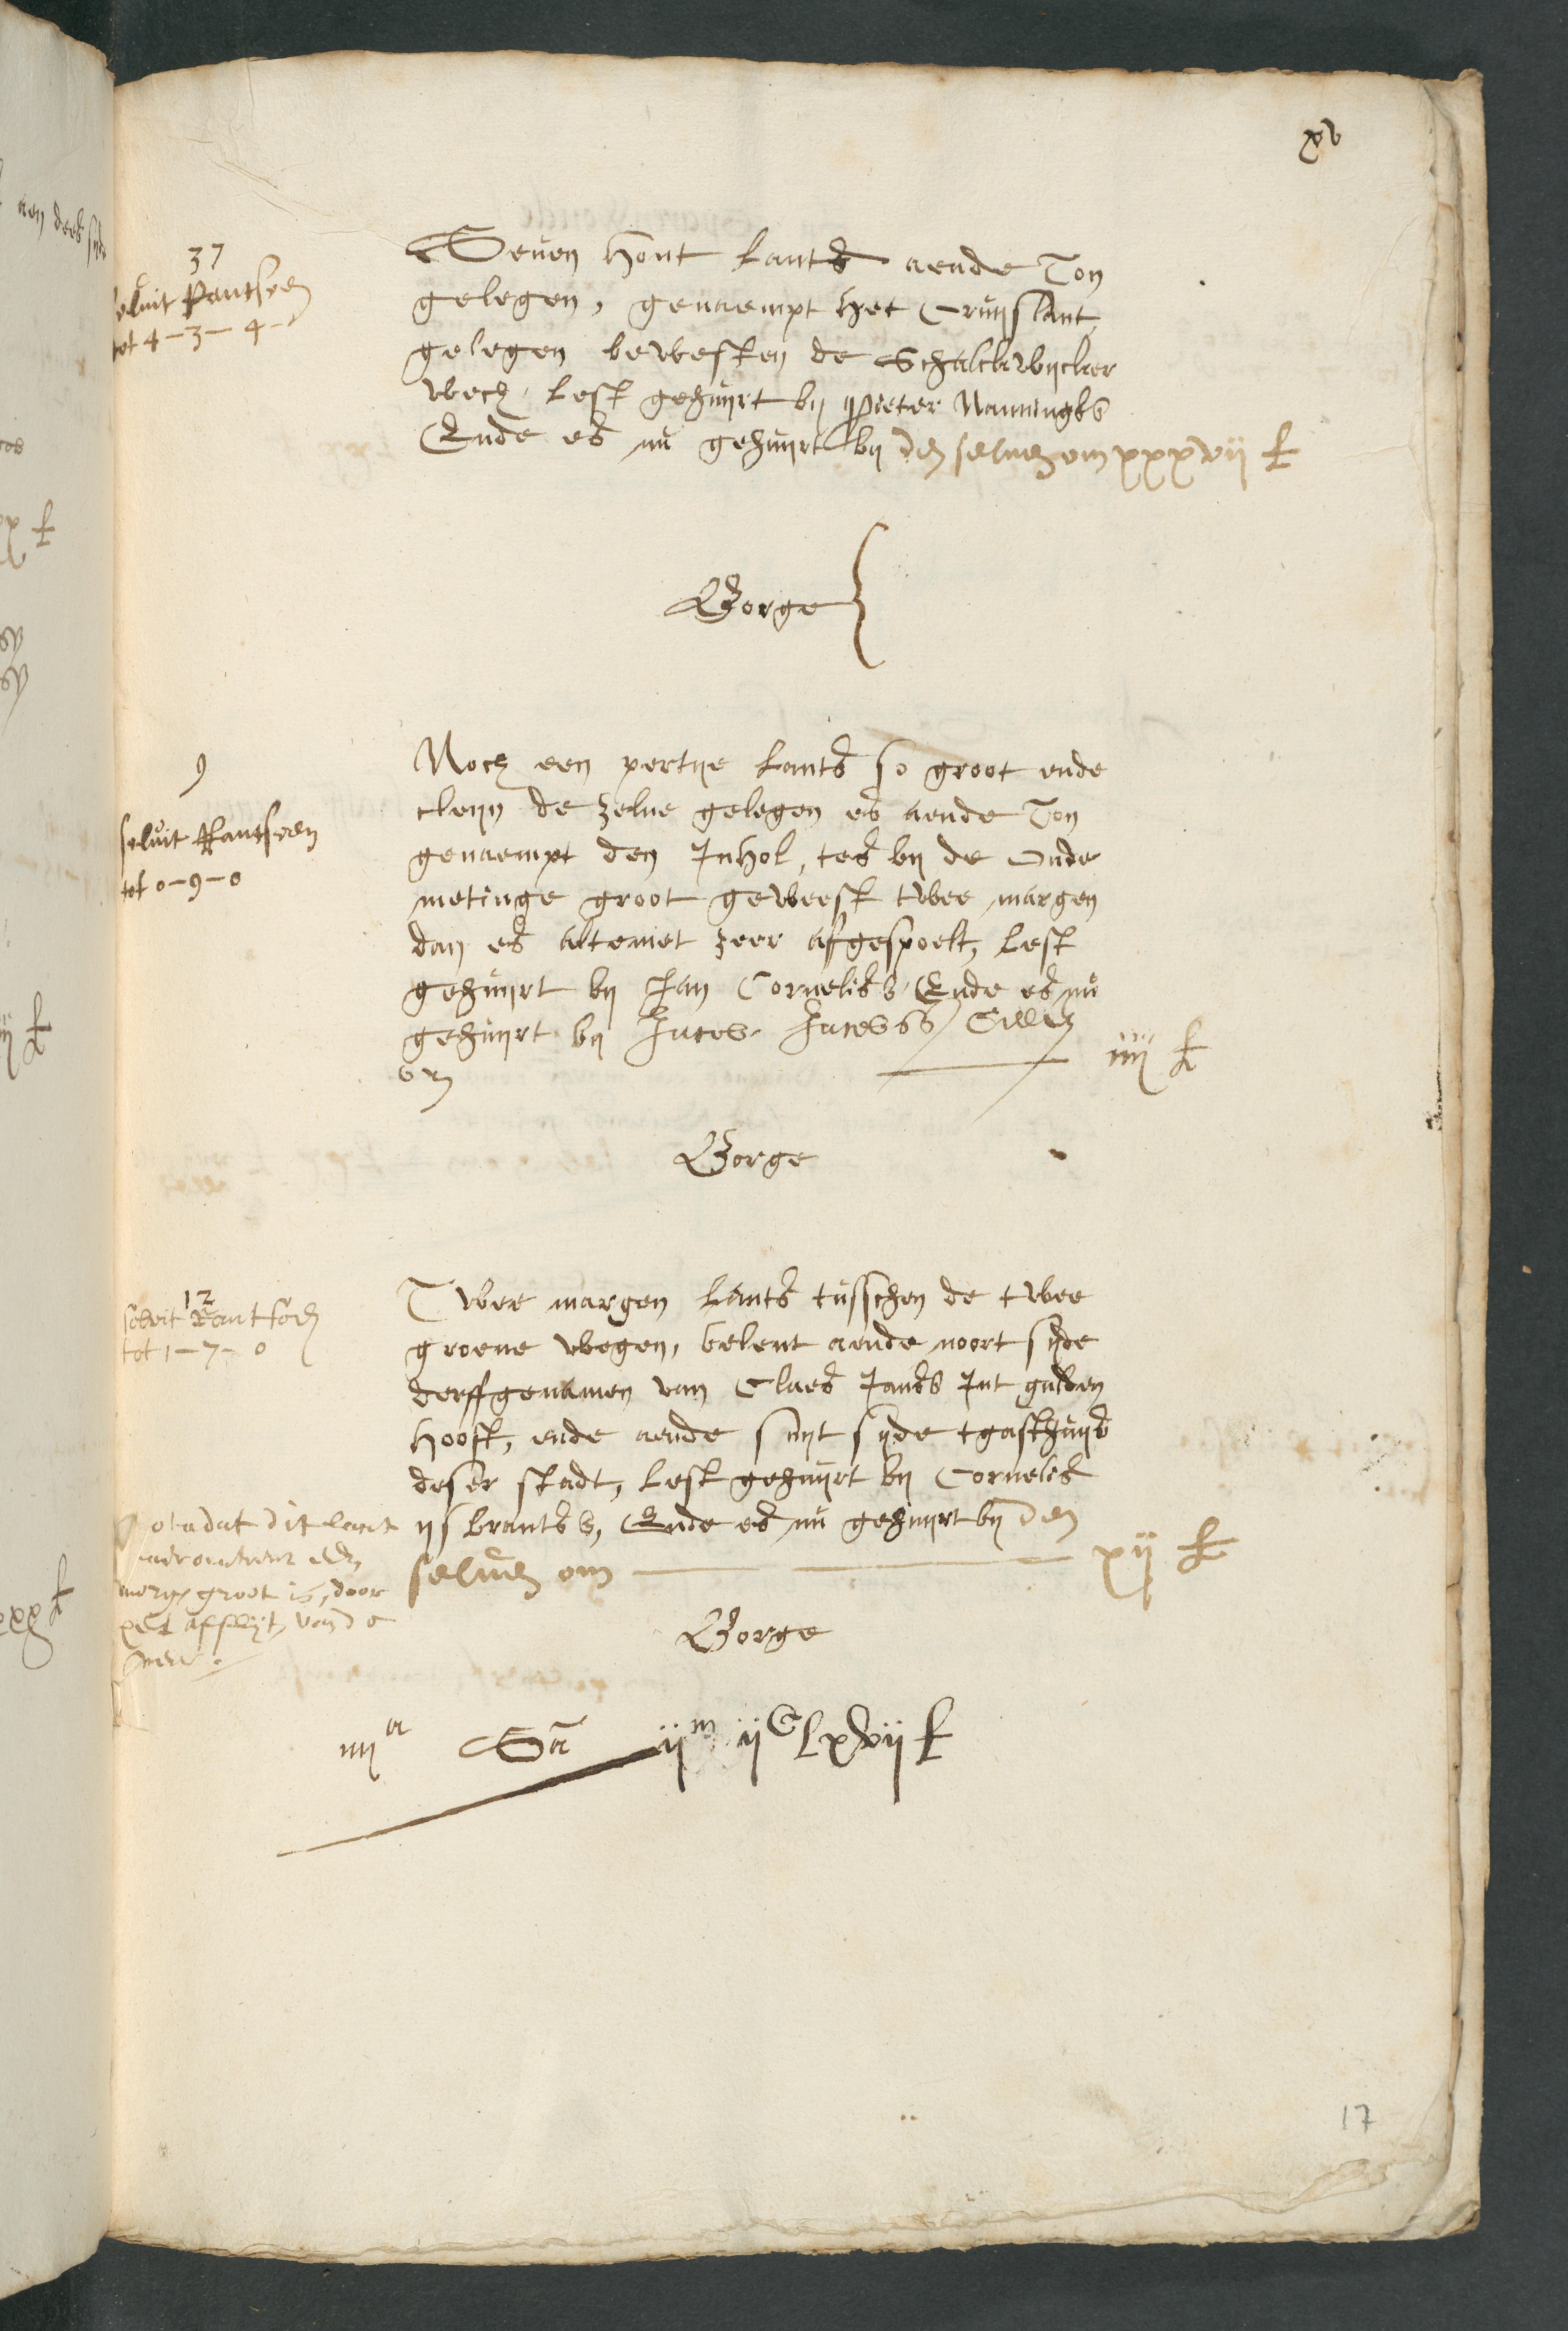 xv
37
solvit Rantsoen
tot 4-3-4-
Seven hont lants aende Ton
gelegen, genaempt het Cruijslant
gelegen bewesten de Schalckwijcker
wech, lest gehuijrt bij Pieter Nanningks
Ende es nu gehuijrt bij den selven om xxxvij £
Borge
9
solvit Rantsoen
tot 0-9-0
Noch een pertije lants so groot ende
cleijn de zelve gelegen es aende Ton
genaempt den Inhol, tes bij de Oude
metinge groot geweest twee margen
dan es altemet zeer afgespoelt, lest
gehuijrt bij Jan Cornelisz Ende es nu
gehuijrt bij Jacob Jacobss
om iiij £
Borge
12
solvit Rantsoen
tot 1-7-0
Twee margen lants tusschen de twee
groene wegen, belent aende noort sijde
derffgenamen van Claes Jansz Int gulden
hooft, ende aende suijt sijde tgasthuijs
deser stadt, lest gehuijrt bij Cornelis
ijsbrantsz, Ende es nu gehuijrt bij den
selven om xij £
Nota dat dit lant
margen groot is, door
het afslijten van de
meer.
Borge
iiij a Sa ijm ijC lxvij £
17